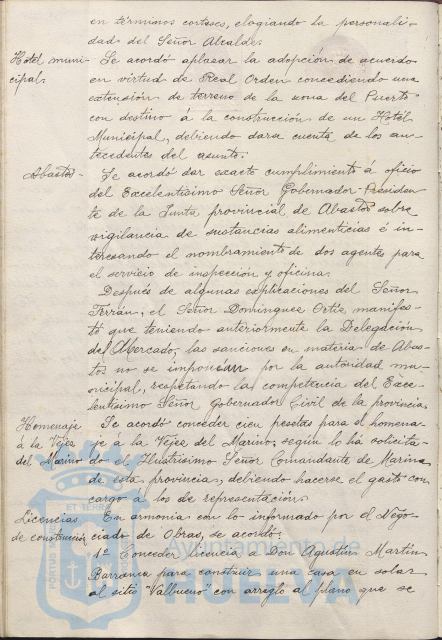 en términos corteses, elogiando la personali-
dad del Señor Alcalde.
Hotel muni-
cipal.
Se acordó aplazar la adopción de acuerdo
en virtud de Real Orden concediendo una
extensión de terreno de la zona del Puerto
con destino á la construcción de un Hotel
Municipal, debiendo darse cuenta de los an-
tecedentes del asunto.
Abastos-
Se acordó dar exacto cumplimiento á oficio
del Excelentísimo Señor Gobernador-Presiden-
te de la Junta provincial de Abastos sobre
vigilancia de sustancias alimenticias é in-
teresando el nombramiento de dos agentes para
el servicio de inspección y oficina.
Después de algunas explicaciones del Señor
Terrán, el Señor Dominguez Ortiz, manifes-
tó que teniendo anteriormente la Delegación
del Mercado, las sanciones en materia de Abas-
tos no se imponían por la autoridad mu-
nicipal, respetando la competencia del Exce-
lentísimo Señor Gobernador Civil de la provincia.
Homenaje
á la Vejez
del Marino
Se acordó conceder cien pesetas para el homena-
je á la Vejez del Marino, según lo ha solicita-
do el Ilustrísimo Señor Comandante de Marina
de esta provincia, debiendo hacerse el gasto con
cargo á los de representación.
Licencias
de construcción
En armonía con lo informado por el Nego-
ciado de Obras, se acordó:
1º Conceder licencia á Don Agustin Martin
Barranca para construir una casa en solar
al sitio "Valbueno" con arreglo al plano que se
Ayuntamiento de
HUELVA
PORTUS
ET TERRÆ